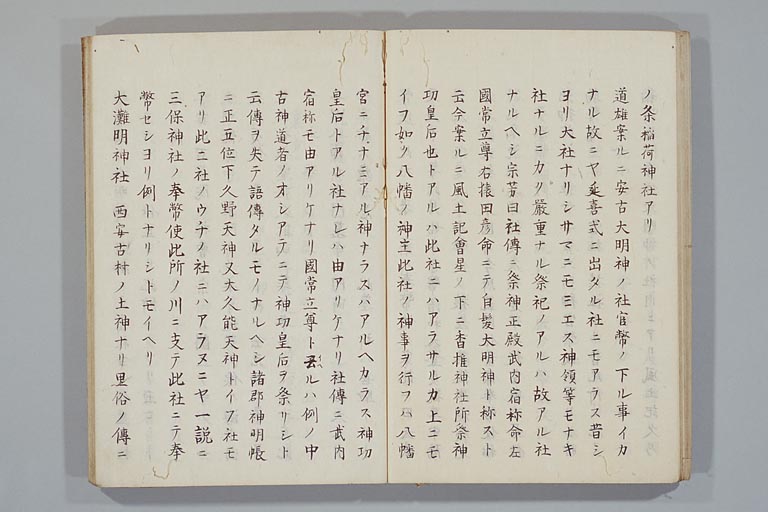 ノ条稲荷神社アリ
道雄案ルニ安古大明神ノ社官幣ノ下ル事イカ
ナル故ニヤ延喜式ニ出タル社ニモアラス昔シ
ヨリ大社ナリシサマニモミエス神領等モナキ
社ナルニカク厳重ナル祭祀ノアルハ故アル社
ナルヘシ宗芳曰社傳ニ祭神正殿武内宿祢命左
國常立尊右猿田彦命ニテ白髪大明神ト称スト
云今案ルニ風土記會星ノ下ニ杳椎神社所祭神
功皇后也トアルハ此社ニハアラサルカ上ニモ
イフ如ク八幡ノ神主此社ノ神事ヲ行フハ八幡
宮ニチナミアル神ナラスハアルヘカラス神功
皇后トアル社ナレハ由アリケナリ社傳ニ武内
宿祢モ由アリケナリ國常立尊ト云ルハ例ノ中
古神道者ノオシアテニテ神功皇后ヲ祭リシト
云傳ヲ失テ語傳タルモノナルヘシ諸郡神明帳
ニ正五位下久野天神又大久能天神トイフ社モ
アリ此二社ノウチノ社ニハアラヌニヤ一説ニ
三保神社ノ奉幣使此所ノ川ニ支テ此社ニテ奉
幣セシヨリ例トナリシトモイヘリ
大灘明神社 西安古村ノ土神ナリ里俗ノ傳ニ